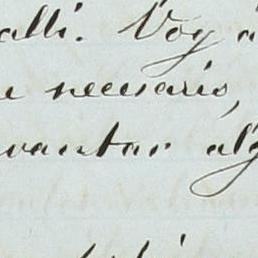 alli. Voy á
necesario,
vantar alg